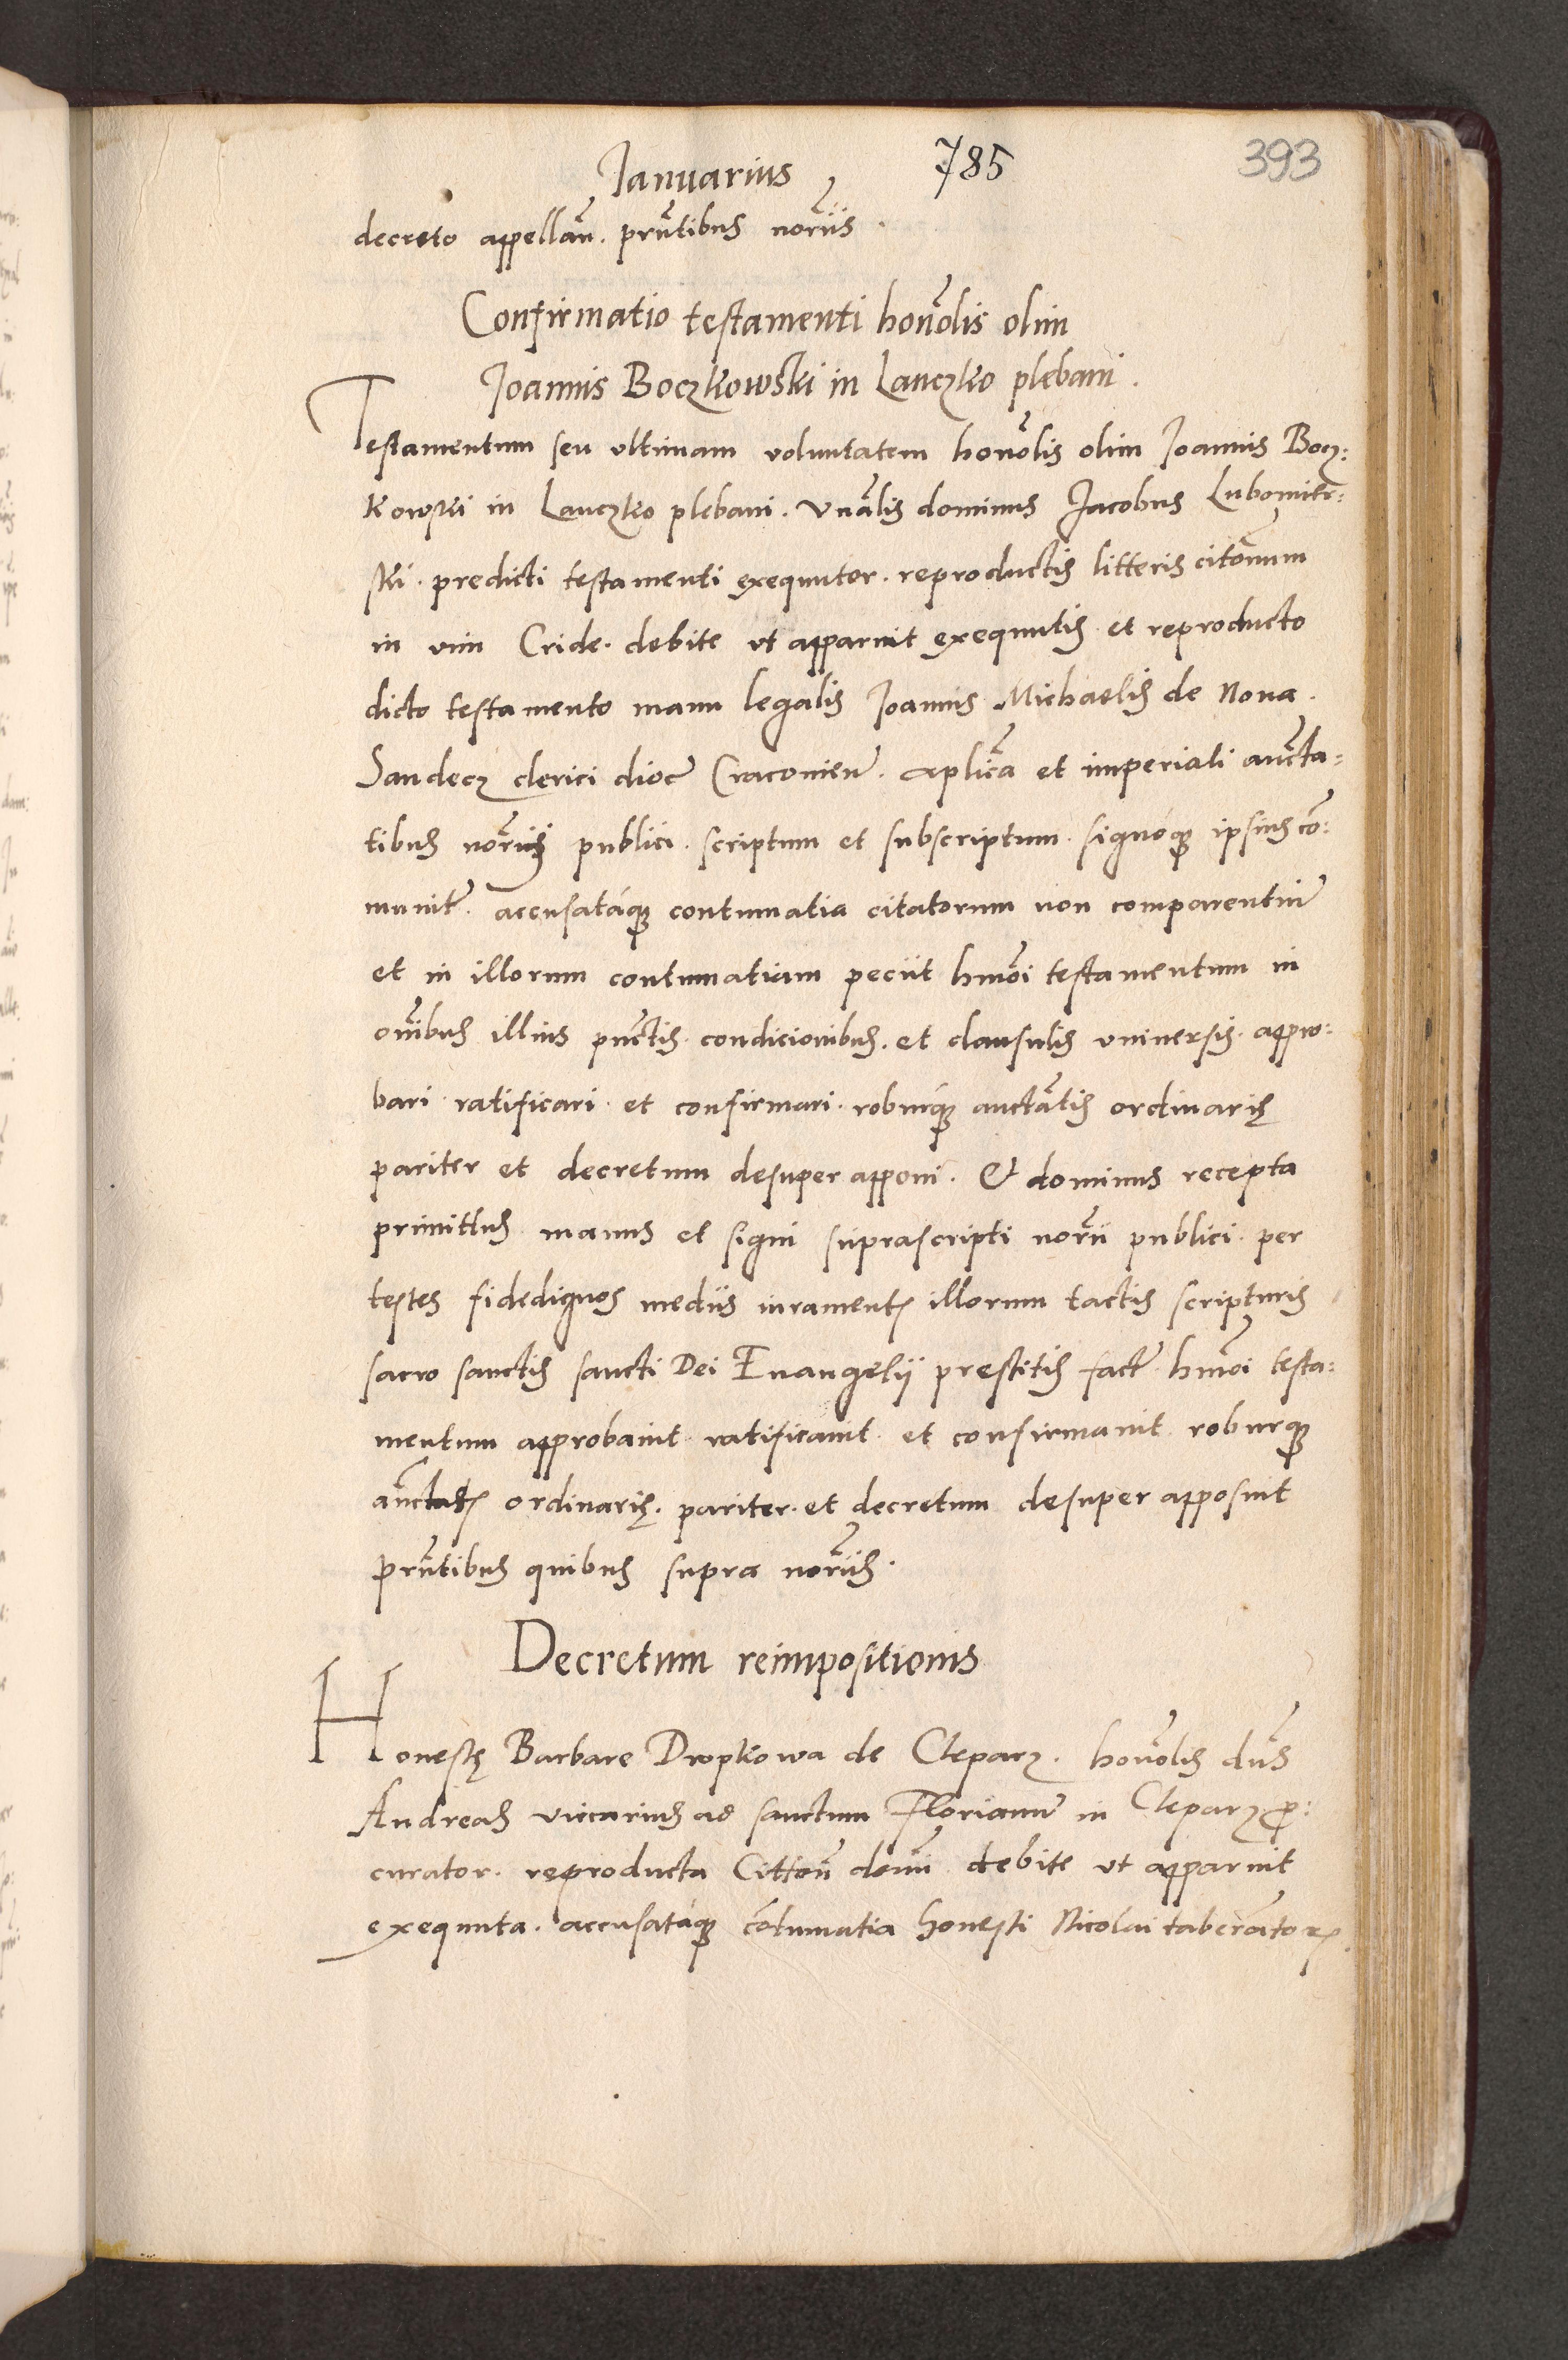 Ianuarius 785 393
decreto appellañ. prñtibus norĩis.
Confirmatio testamenti honõlis olim
Joannis Boczkowski in Lanczko plebani.
Testamentum seu vltimam voluntatem honõlis olim Joannis Bocz:
kowski in Lanczko plebani. Vnãlis dominus Jacobus Lubomier:
ski. predicti testamenti exequutor. reproductis litteris citõnum
in vim Cride. debite vt apparuit exequutis et reproducto
dicto testamento manu legalis Joannis Michaelis de Noua.
Sandecz clerici dioc̃ Cracouieñ. aplicã et imperiali auncta=
tibus norĩi publici. scriptum et subscriptum. signoq̃ ipsius cõ:
munit̃. accusatáq̃ contumatia citatorum non comparentiũ
et in illorum contumatiam peciit hmõi testamentum in
oñibus illius punctis. condicionibus. et clausulis vniuersis. appro:
bari ratificari. et confirmari. roburq̃ auctãtis ordinarię
pariter et decretum desuper apponi. Et dominus recepta
primittus manus et signi suprascripti norĩi publici. per
testes fidedignos mediis iuramentis illorum tactis scripturis
sacro sanctis sancti Dei Euangelij prestitis fact̃. hmõi testa:
mentum approbauit. ratificauit. et confirmauit. roburq̃
aũctatis ordinarię. pariter. et decretum desuper apposuit
prñtibus quibus supra norĩis.
Decretum reimpositionis
Honestę Barbare Dropkowa de Cleparz. honõlis dñs
Andreas vicarius ad sanctum Florianũ in Cleparz p̃:
curator. reproducta Cittoñ domĩ debite vt apparuit
exequuta. accusatáq̃ cõtumatia honesti Nicolai tabernãtoris.